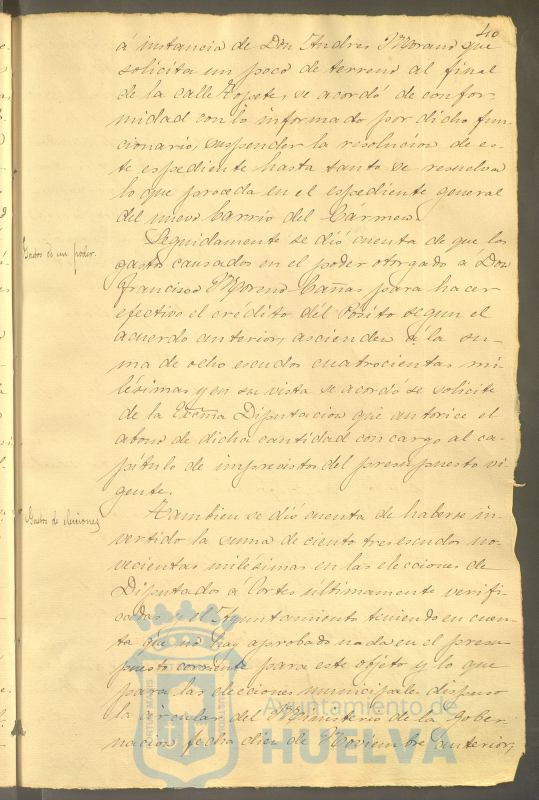 40
á instancia de Don Andres Morano que
solicita un poco de terreno al final
de la calle Topete, se acordó de confor-
midad con lo informado por dicho fun-
cionario, suspender la resolucion de es-
te espediente hasta tanto se resuelva
lo que proceda en el espediente general
del nuevo barrio del Cármen.
Gastos de un poder.
Seguidamente se dió cuenta de que los
gastos causados en el poder otorgado a Don
Francisco Moreno Cañas para hacer
efectivo el crédito del Posito segun el
acuerdo anterior, ascienden á la su-
ma de ocho escudos cuatrocientas mi-
lésimas y en su vista se acordó se solicite
de la Excma Diputacion que autorice el
abono de dicha cantidad con cargo al ca-
pitulo de imprevistos del presupuesto vi-
gente.
Gastos de elecciones
Tambien se dió cuenta de haberse in-
vertido la suma de ciento tres escudos no-
vecientas milésimas en las elecciones de
Diputados á Cortes últimamente verifi-
cadas y el Ayuntamiento teniendo en cuen-
ta que no hay aprobado nada en el presu-
puesto corriente para este objeto y lo que
para las elecciones municipales dispuso
la circular del Ministerio de la Gober-
nacion fecha diez de Noviembre anterior,
Ayuntamiento de
HUELVA